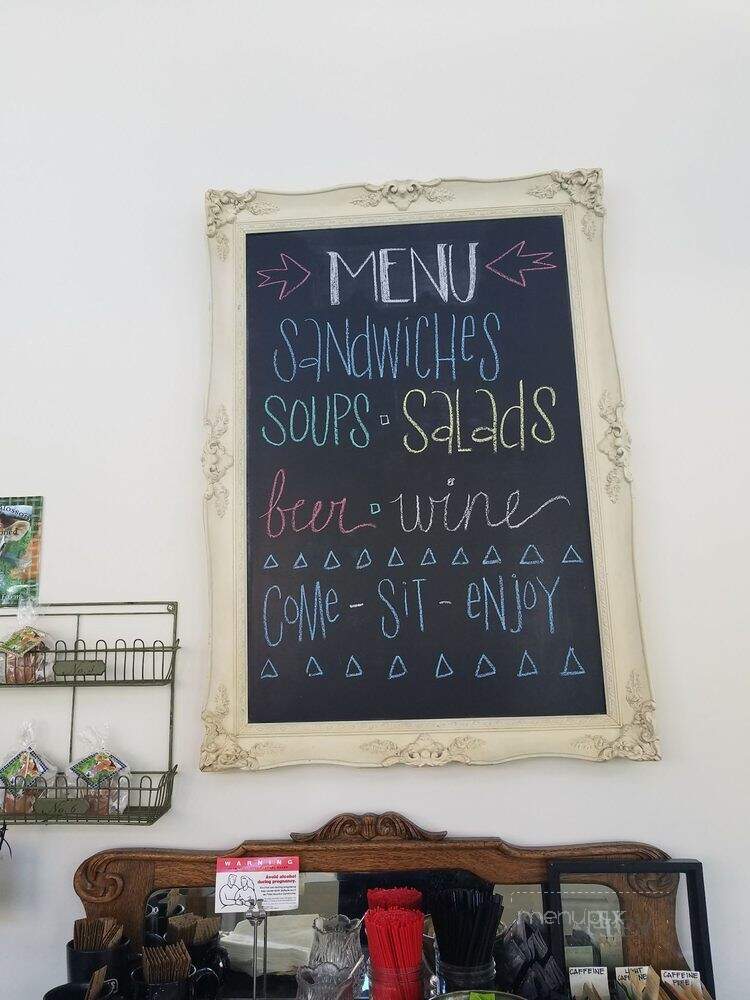 MENU
SANDWICHES
SOUPS SALADS
beer wine
COME - SIT - ENJOY
No. 6
WARNING
Avoid alcohol
during pregnancy.
menupix
CAFFEINE
CAFFEINE
FREE